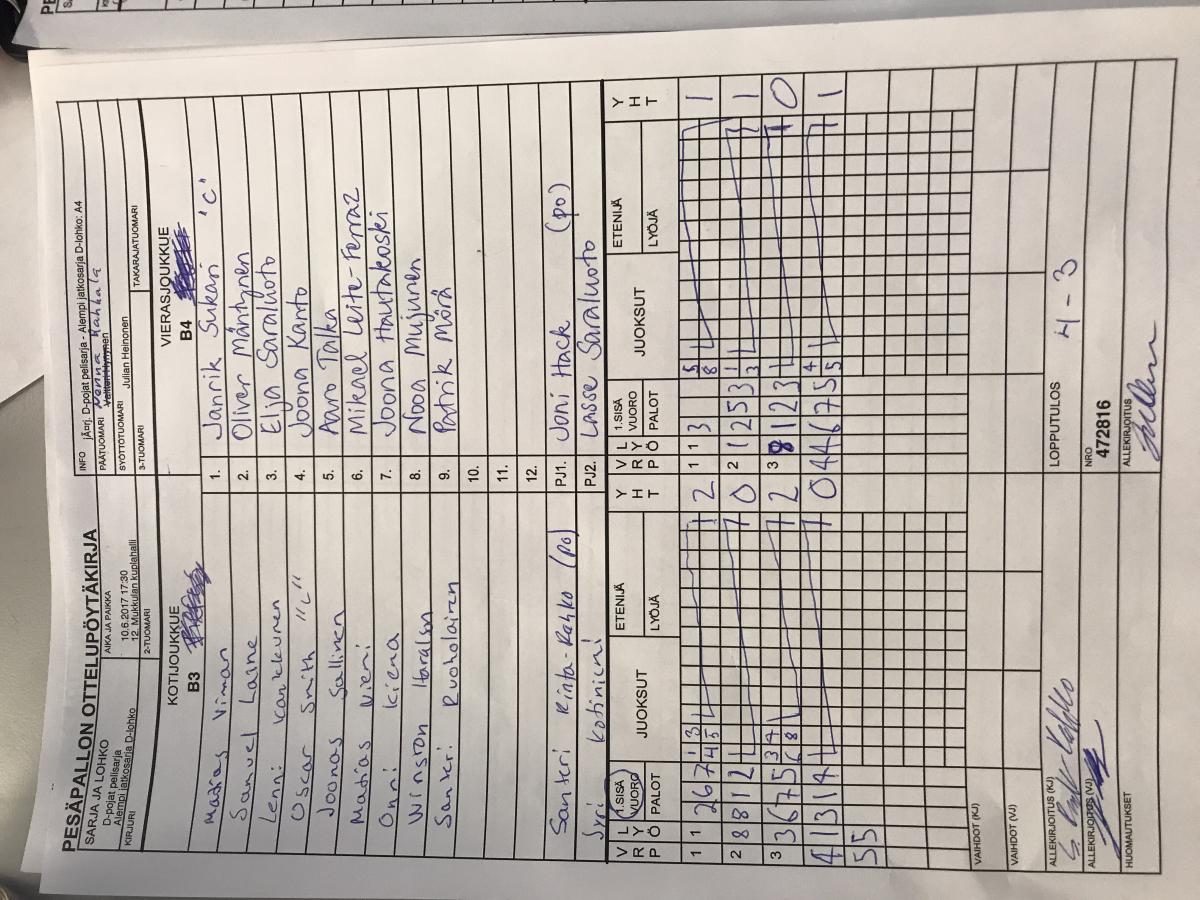 PESÄPALLON OTTELUPÖYTÄKIRJA
SARJA JA LOHKO
D-pojat pelisarja
Alempi jatkosarja D-lohko
KIRJURI
AIKA JA PAIKKA
10.6.2017 17:30
12. Mukkulan kuplahalli
2-TUOMARI
INFO jÃ¤rj. D-pojat pelisarja - Alempi jatkosarja D-lohko: A4
PÄÄTUOMARI
SYÖTTÖTUOMARI Julian Heinonen
3-TUOMARI
TAKARAJATUOMARI
KOTIJOUKKUE
B3
VIERASJOUKKUE
B4
Matias Viman 1. Jannik Sukari "C"
Samuel Laine 2. Oliver Mäntynen
Lenni 3. Elja Saraluoto
Oscar Smith "C" 4. Joona Kanto
Joonas Sallinen 5. Aaro Talka
Matias Niemi 6. Mikael Leite-Ferraz
Onni Kiena 7. Joona Hautakoski
Winston 8. Noa Mujunen
Santeri Ruoholainen 9. Patrik Mörä
10.
11.
12.
Santeri Rinta-Rahko (po) PJ1. Joni Hack (po)
Jyri Kotiniemi PJ2. Lasse Saraluoto
V R P L Y Ö 1.SISÄ VUORO PALOT JUOKSUT ETENIJÄ LYÖJÄ Y H T V R P L Y Ö 1.SISÄ VUORO PALOT JUOKSUT ETENIJÄ LYÖJÄ Y H T
1 1 267 1 3 2 1 1 3 5 1
4 5 8
2 8 812 0 2 1 253 1 1
3
3 3 675 3 4 2 3 8 123 0
6 8
4 1 314 0 4 4 675 4 1
5
5 5
VAIHDOT (KJ)
VAIHDOT (VJ)
ALLEKIRJOITUS (KJ)
ALLEKIRJOITUS (VJ)
HUOMAUTUKSET
LOPPUTULOS 4-3
NRO
472816
ALLEKIRJOITUS